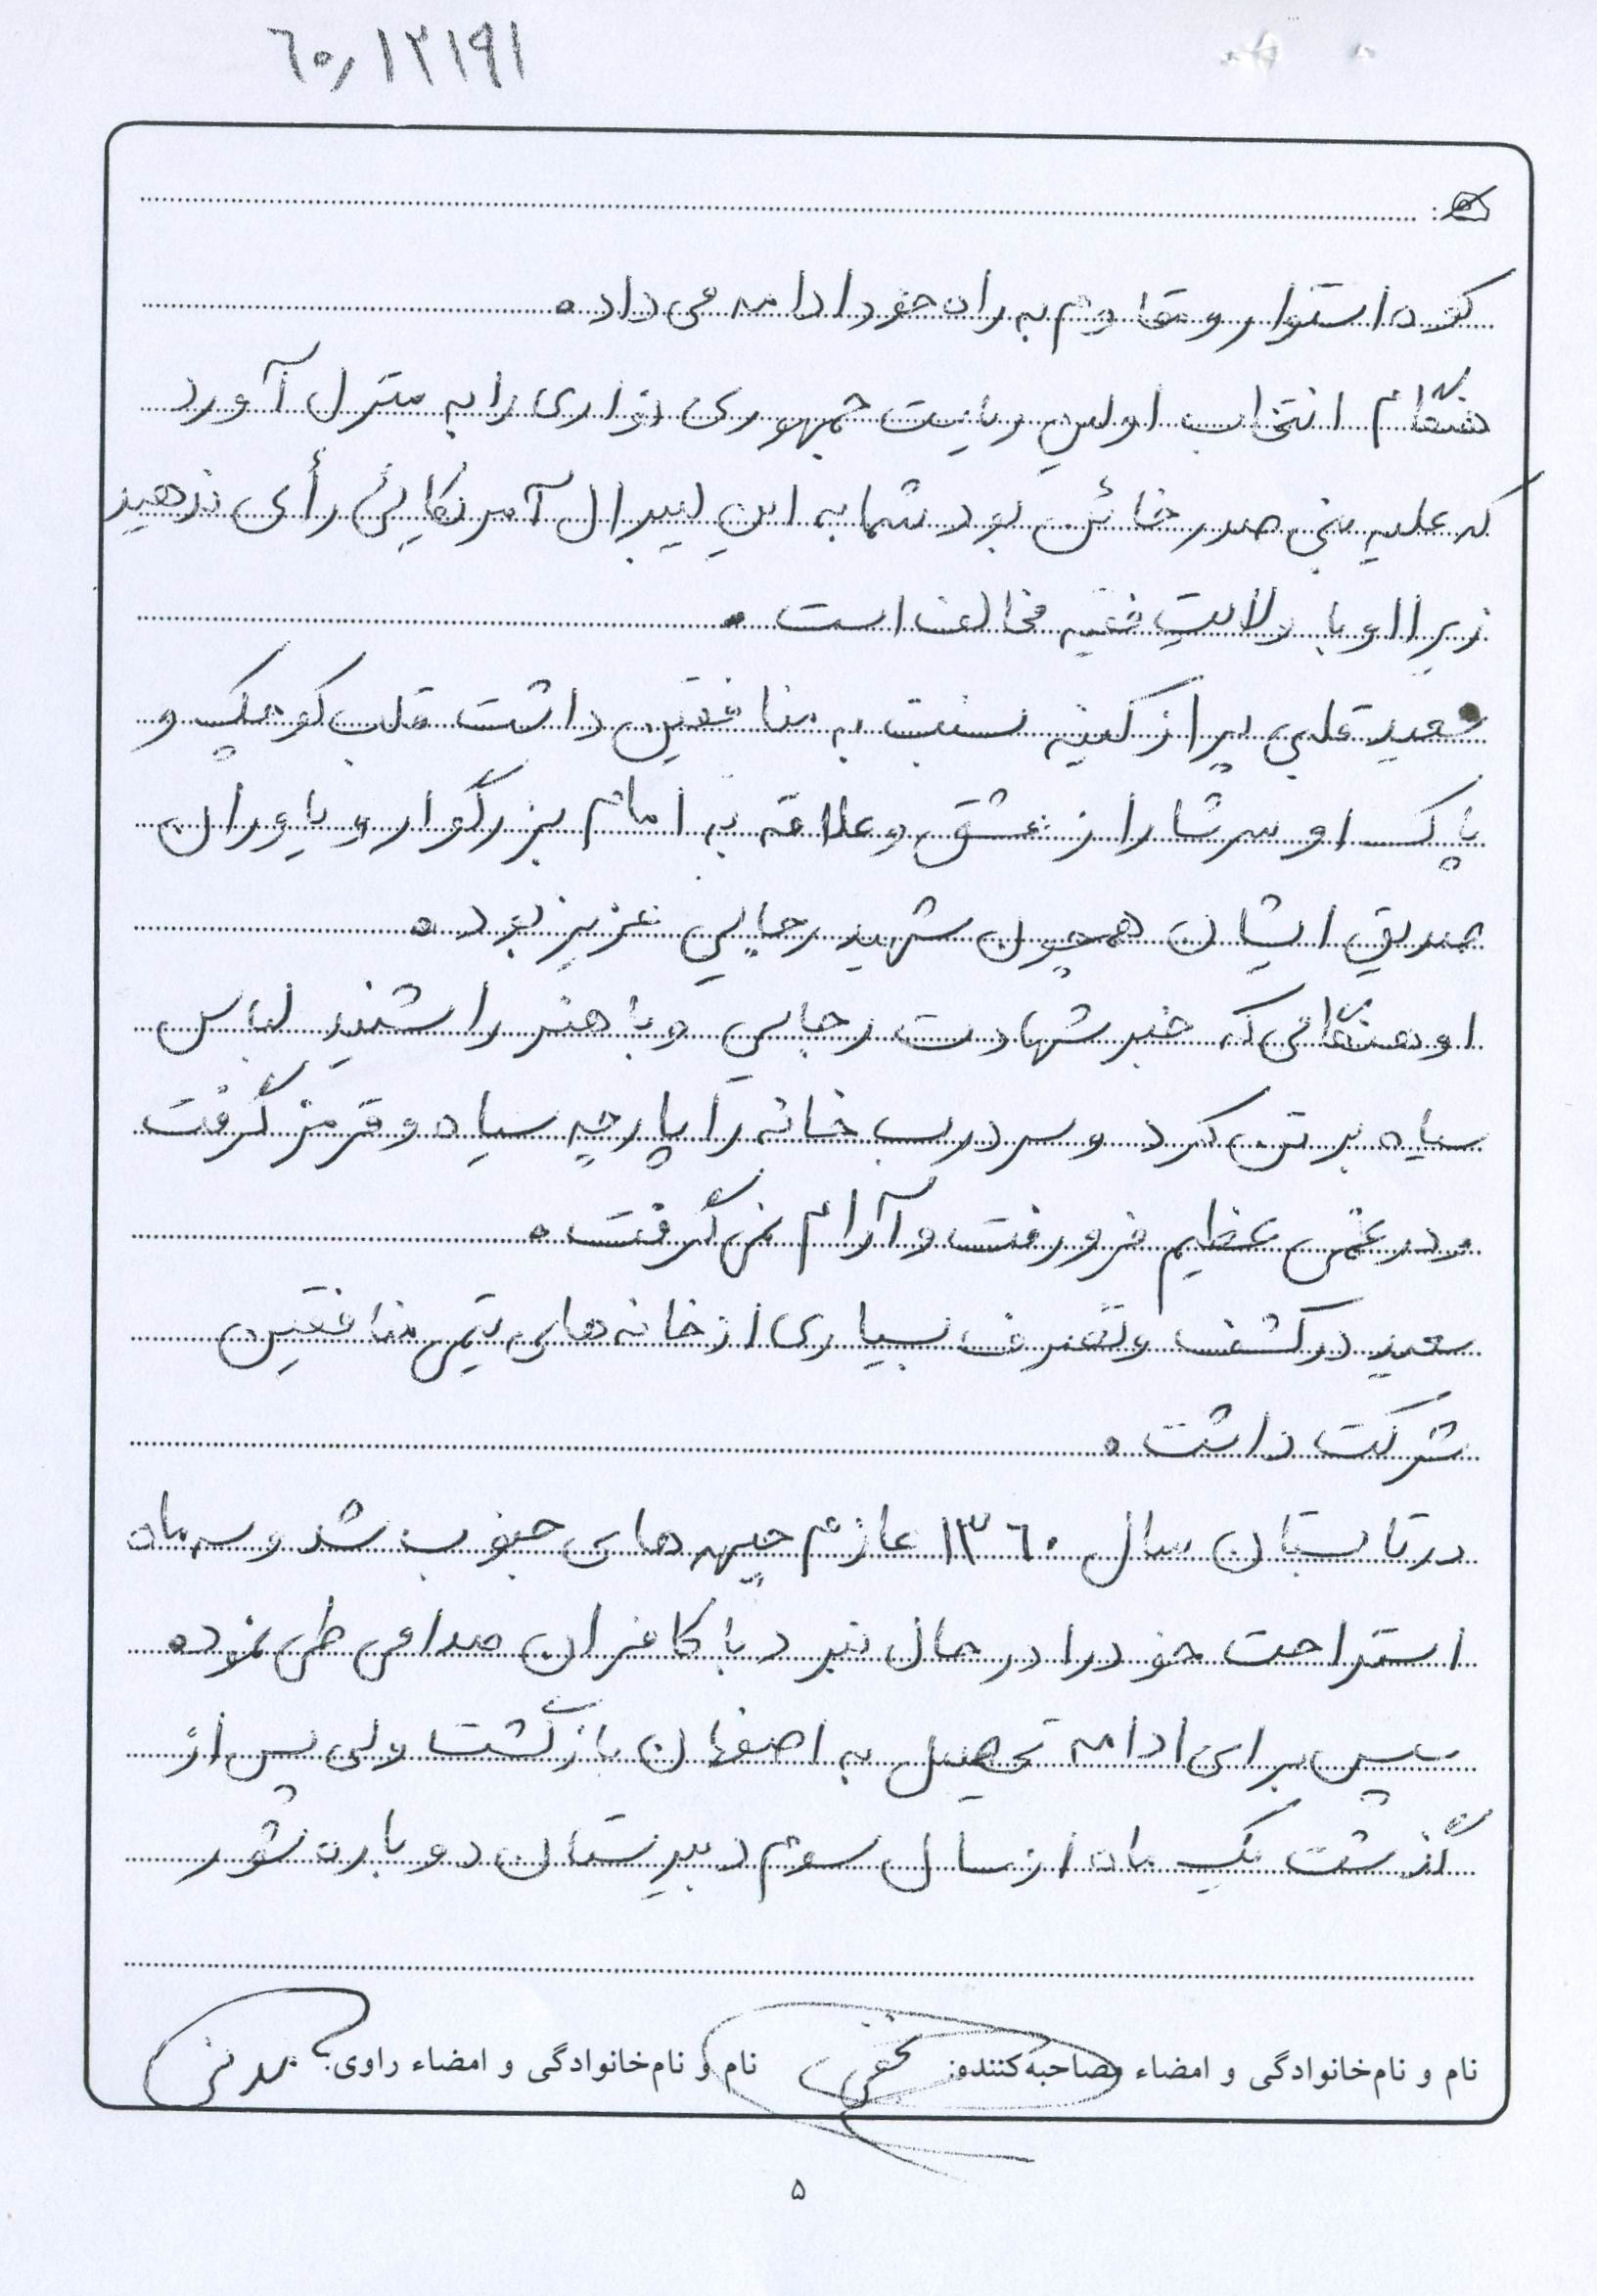 ۶۰٫۱۲۱۹۱
کوه استوار و مقاوم به راه خود ادامه می داد.
هنگام انتخاب اولین ریاست جمهوری نواری را به منزل آورد
که علیه بنی صدر خائن بود شما به این لیبرال آمریکایی رأی ندهید
زیرا او با ولایت فقیه مخالف است.
سعید قلبی پر از کینه نسبت به منافقین داشت قلب کوچک و
پاک او سرشار از عشق و علاقه به امام بزرگوار و یاوران
صدیق ایشان همچون شهید رجایی عزیز بود.
او هنگامی که خبر شهادت رجایی و باهنر را شنید لباس
سیاه بر تن کرد و سر درب خانه را پارچه سیاه و قرمز گرفت
و در غمی عظیم فرو رفت و آرام نمی گرفت.
سعید در کشف و تصرف بسیاری از خانه های تیمی منافقین
شرکت داشت.
در تابستان سال ۱۳۶۰ عازم جبهه های جنوب شد و سه ماه
استراحت خود را در حال نبرد با کافران صدامی طی نموده
سپس برای ادامه تحصیل به اصفهان بازگشت ولی پس از
گذشت یک ماه از سال سوم دبیرستان دوباره شور
نام و نام‌خانوادگی و امضاء مصاحبه‌کننده: نام و نام‌خانوادگی و امضاء راوی:
۵